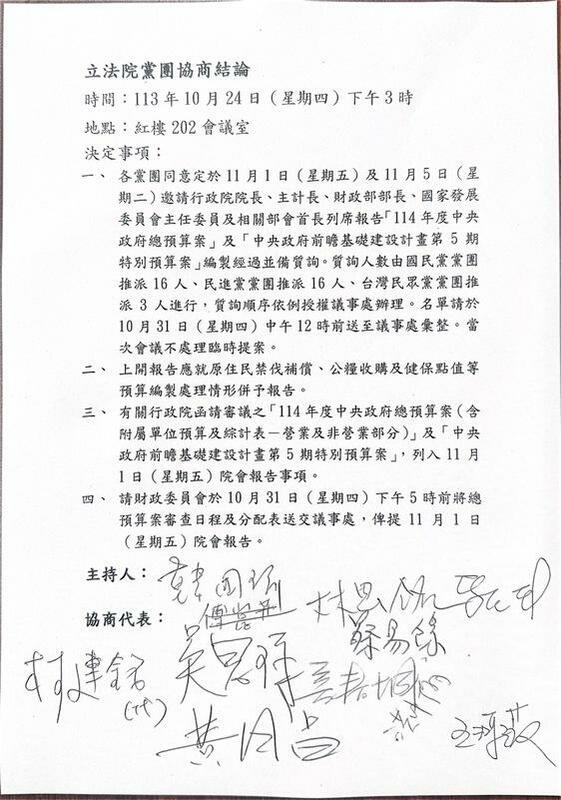 立法院黨團協商結論
時間：113年10月24日（星期四）下午3時
地點：紅樓202會議室
決定事項：
一、各黨團同意定於11月1日（星期五）及11月5日（星
期二）邀請行政院院長、主計長、財政部部長、國家發展
委員會主任委員及相關部會首長列席報告「114年度中央
政府總預算案」及「中央政府前瞻基礎建設計畫第5期
特別預算案」編製經過並備質詢。質詢人數由國民黨黨團
推派16人、民進黨黨團推派16人、台灣民眾黨黨團推
派3人進行，質詢順序依例授權議事處辦理。名單請於
10月31日（星期四）中午12時前送至議事處彙整。當
次會議不處理臨時提案。
二、上開報告應就原住民禁伐補償、公糧收購及健保點值等
預算編製處理情形併予報告。
三、有關行政院函請審議之「114年度中央政府總預算案（含
附屬單位預算及綜計表－營業及非營業部分）」及「中央
政府前瞻基礎建設計畫第5期特別預算案」，列入11月
1日（星期五）院會報告事項。
四、請財政委員會於10月31日（星期四）下午5時前將總
預算案審查日程及分配表送交議事處，俾提11月1日
（星期五）院會報告。
主持人：韓國瑜
協商代表：
吳思瑤
(代)
黃國昌